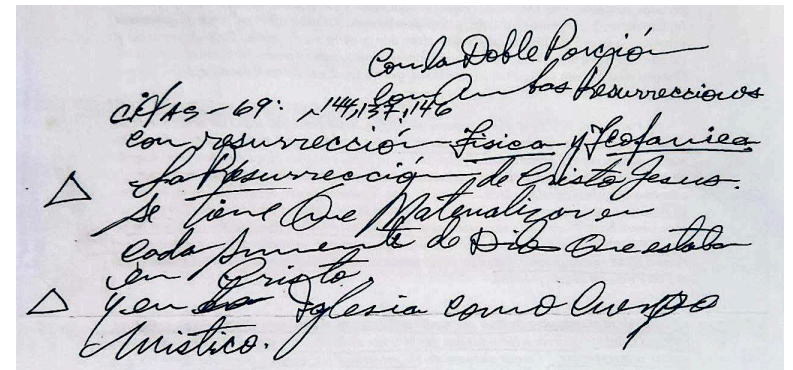 Con la Doble Porción
Con Ambas Resurrecciones
CITAS - 69: 144, 137, 146
con resurrección Física y Teofanica
La Resurrección de Cristo Jesus.
se tiene Que Materializar en
cada simiente de Dios Que estaba
en Cristo.
y en la Iglesia como Cuerpo
Místico.